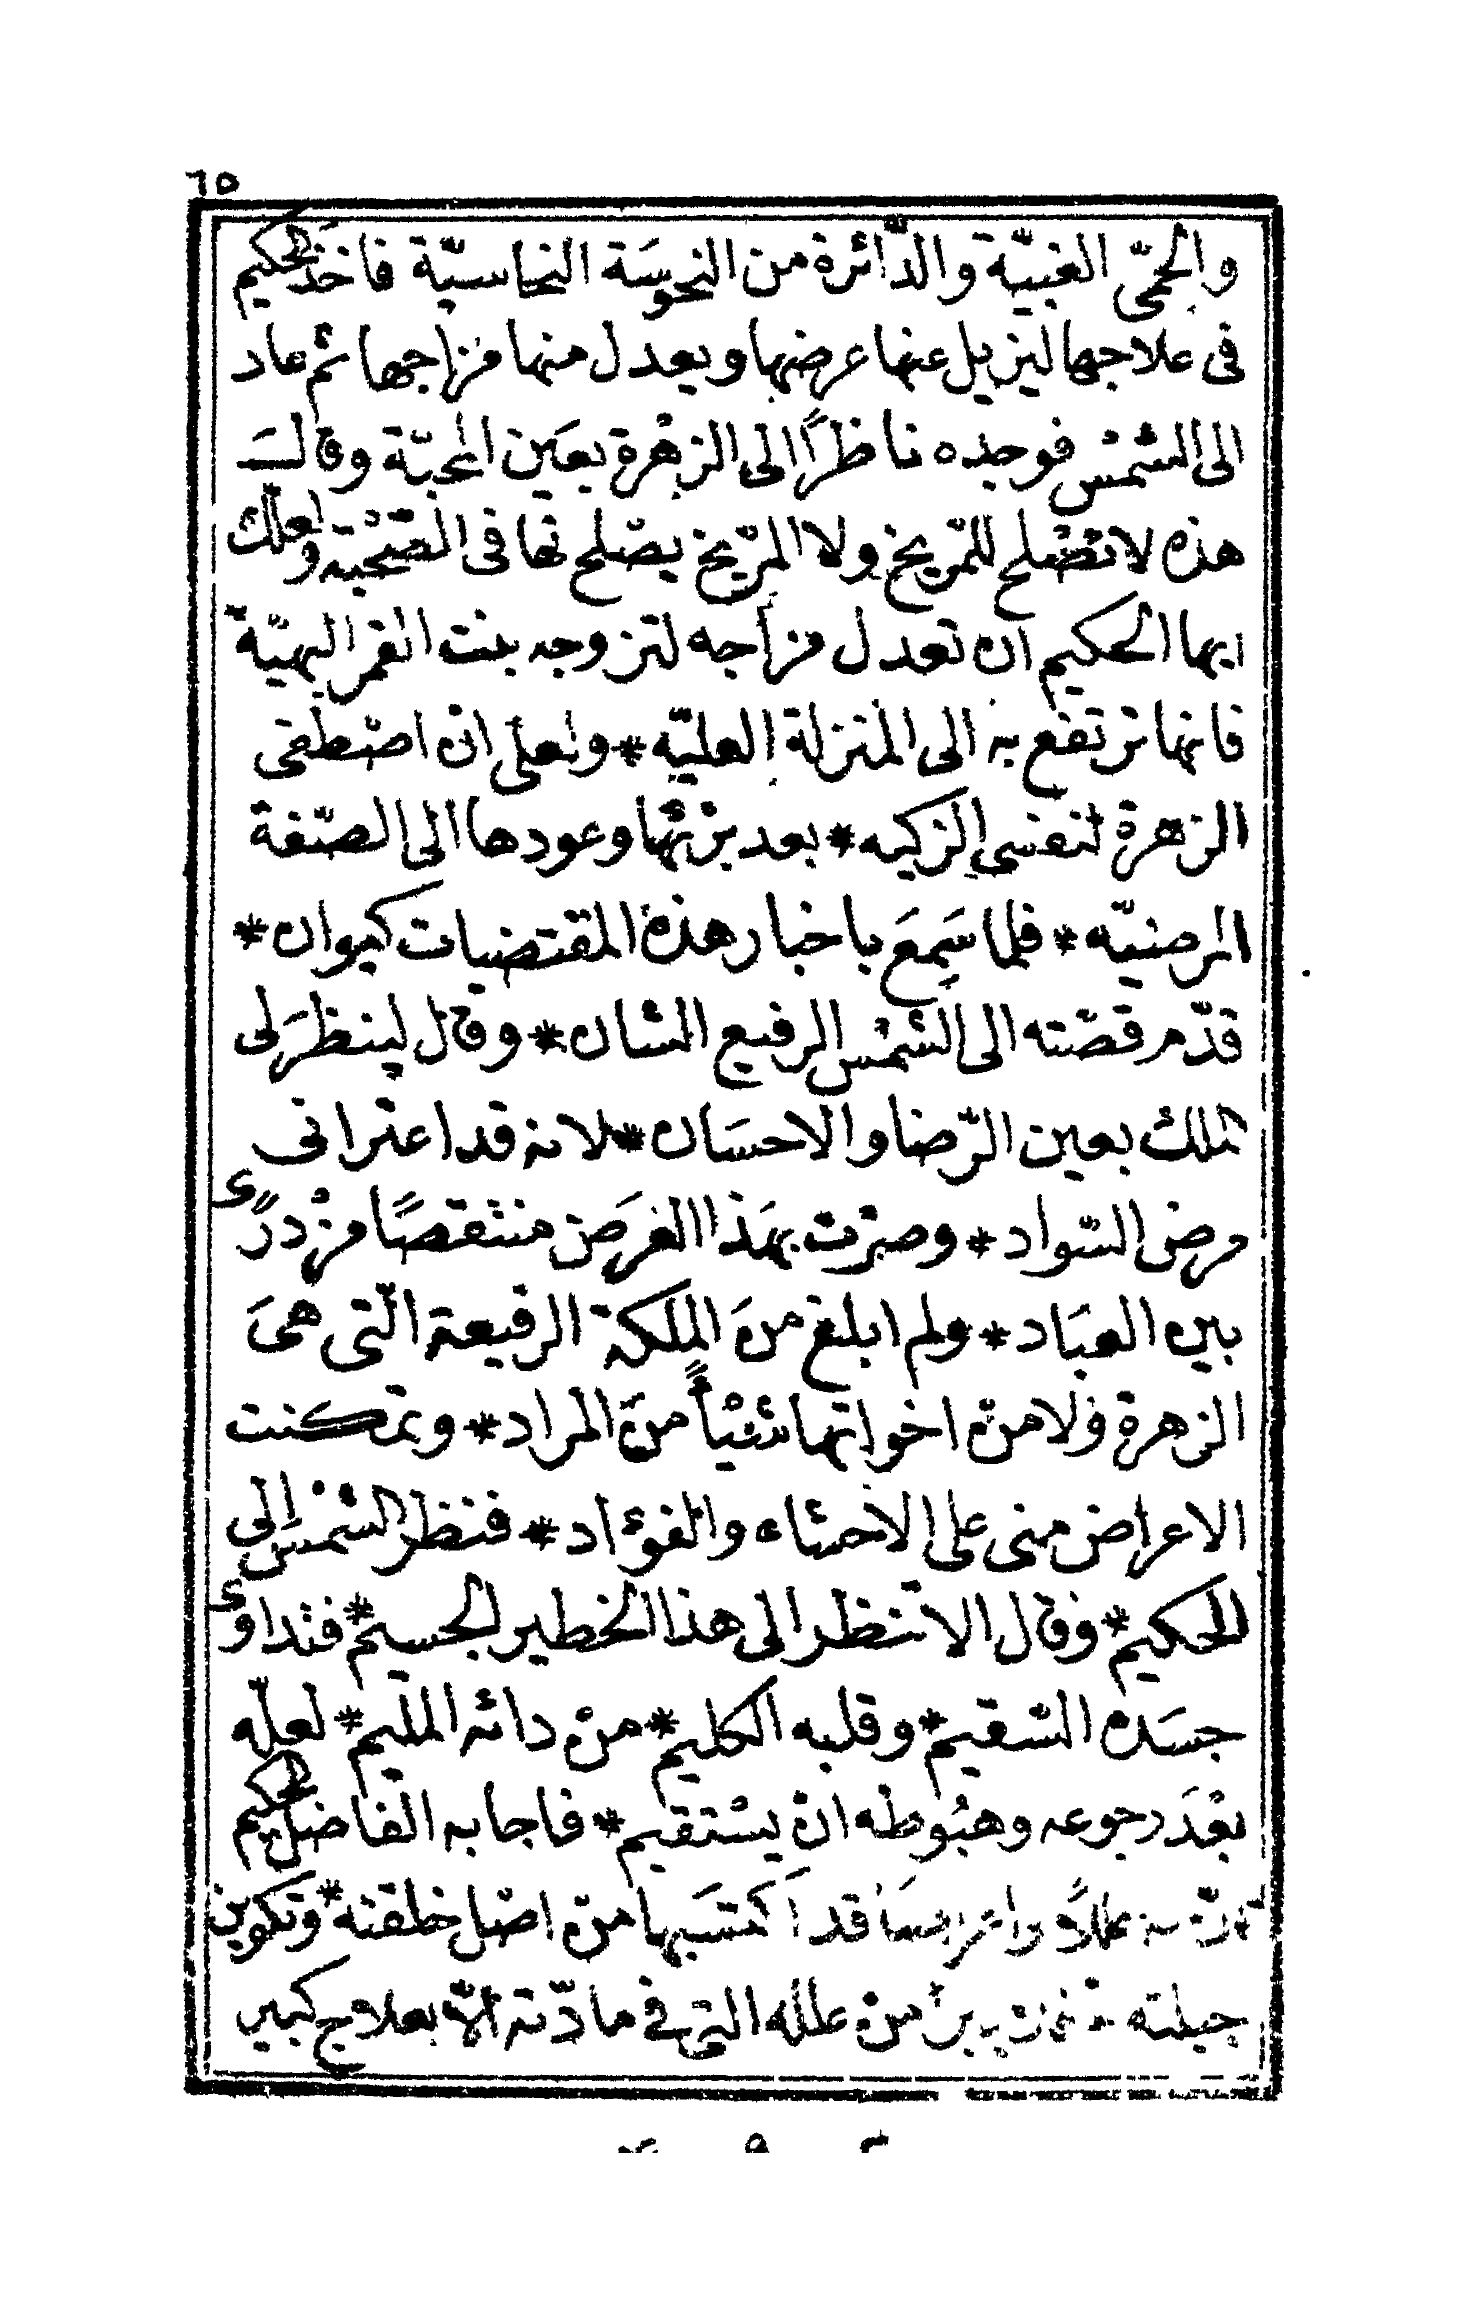 ٦٥
والحمّى الغبيّة والدّائرة من النحوسَة النحاسيّة فاخذ الحكيم
فى علاجها ليزيل عنها عرضها ويعدل منها مزاجها ثم عاد
الى الشمْس فوجده ناظرًا الى الزهْرة بعَين المحبّة وقالــَ
هذه لا تصْلح للمّريخ ولا المرّيخ يصْلح لها فى الصّحْبة ولعلك
ايها الحكيم ان تعدل مزاجه لتزوجه ببنت القمر البهيّة
فانها ترتفع به الى المنزلة العليّه * ولعلى انْ اصْطفى
الزهرة لنفسى الزكيه * بعد برْئها وعودها الى الصّفة
المرضيّه * فلما سَمِعَ باخبار هذه المقتضيات كيوان *
قدّم قصّته الى الشمْس الرفيع الشان * وقال لينظرَ لى
الملك بعين الرّضا والاحسَان * لانه قد اعترانى
مرض السّواد * وصرْت بهَذا الغرَض منتقصًا مزْدرًى
بين العبَاد * ولم ابلغ منَ الملكة الرفيعة الّتى هىَ
الزهرة ولا منْ اخواتها شيْئًا منَ المراد * وتمكنت
الاعراض منى على الاحشاء والفؤاد * فنظر الشمْس الى
الحكيم * وقال الا تنظر الى هذا الخطير الجسيم * فتداوى
جسَده السّقيم * وقلبه الكليم * منْ دائه المليم * لعلّه
بعْدَ رجوعه وهبُوطه انْ يسْتقيم * فاجابه الفاضل الحكيم
به عللاً واعراضَا قد اكتسَبها منْ اصْل خلقته * وتكوين
جبلته يبرأ منْ علله التى فى مادّته الّا بعلاج كبير